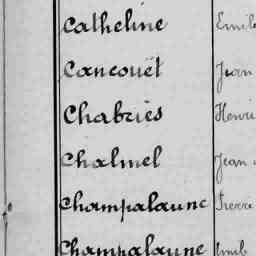 Catheline Emile
Cancouët Jean
Chabriès Henri
Chalmel Jean
Champalaune Pierre
Champalaune Emile